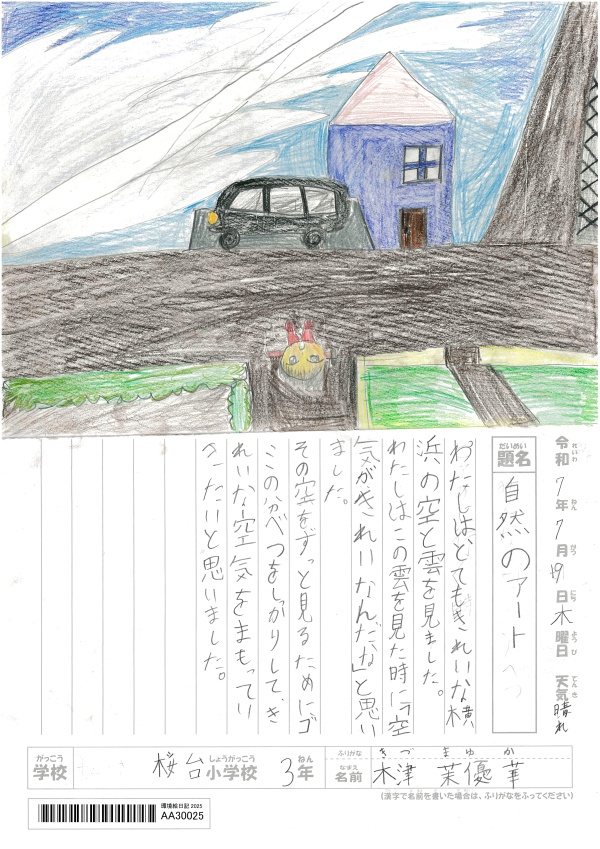 令和7年7月19日木曜日 天気晴れ
れいわ ねん がつ にち ようび てんき
だいめい
題名
自然のアート
わたしは、とてもきれいな横
浜の空と雲を見ました。
わたしはこの雲を見た時に「空
気がきれいなんだな」と思い
ました。
その空をずっと見るためにゴ
ミの分べつをしっかりして、き
れいな空気をまもってい
きたいと思いました。
がっこう
学校
桜台小学校 3年
しょうがっこう ねん
ふりがな
きづ まゆか
なまえ
名前
木津 茉優華
(漢字で名前を書いた場合は、ふりがなをふってください)
環境絵日記 2025
AA30025